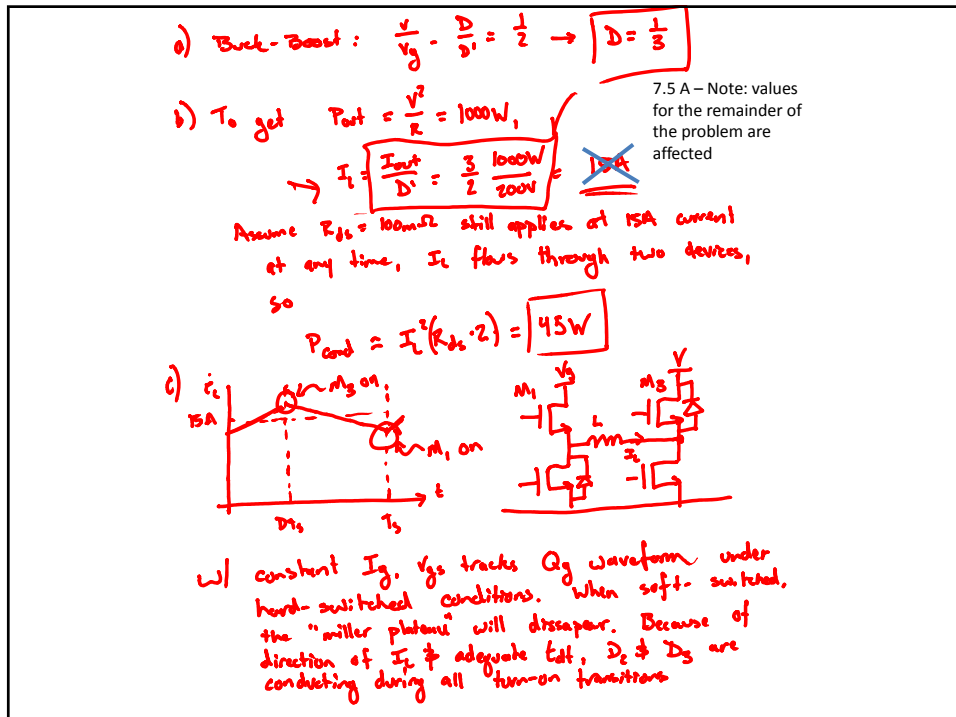 a) Buck-Boost: V/Vg - D/D' = 1/2 → D = 1/3
b) To get Pout = V²/R = 1000W,
7.5 A – Note: values
for the remainder of
the problem are
affected
→ IL = Iout/D' = 3/2 1000W/200V = 15A
Assume Rds = 100mΩ still applies at 15A current
at any time, IL flows through two devices,
so
Pcond = IL²(Rds·2) = 45W
c) iL
M3 on
15A
M1 on
t
DTs
Ts
Vg
V
M1
M3
L
IL
w/ constant Ig, Vgs tracks Qg waveform under
hard-switched conditions. When soft-switched,
the "miller plateau" will dissapear. Because of
direction of IL & adequate tdt, D2 & D3 are
conducting during all turn-on transitions